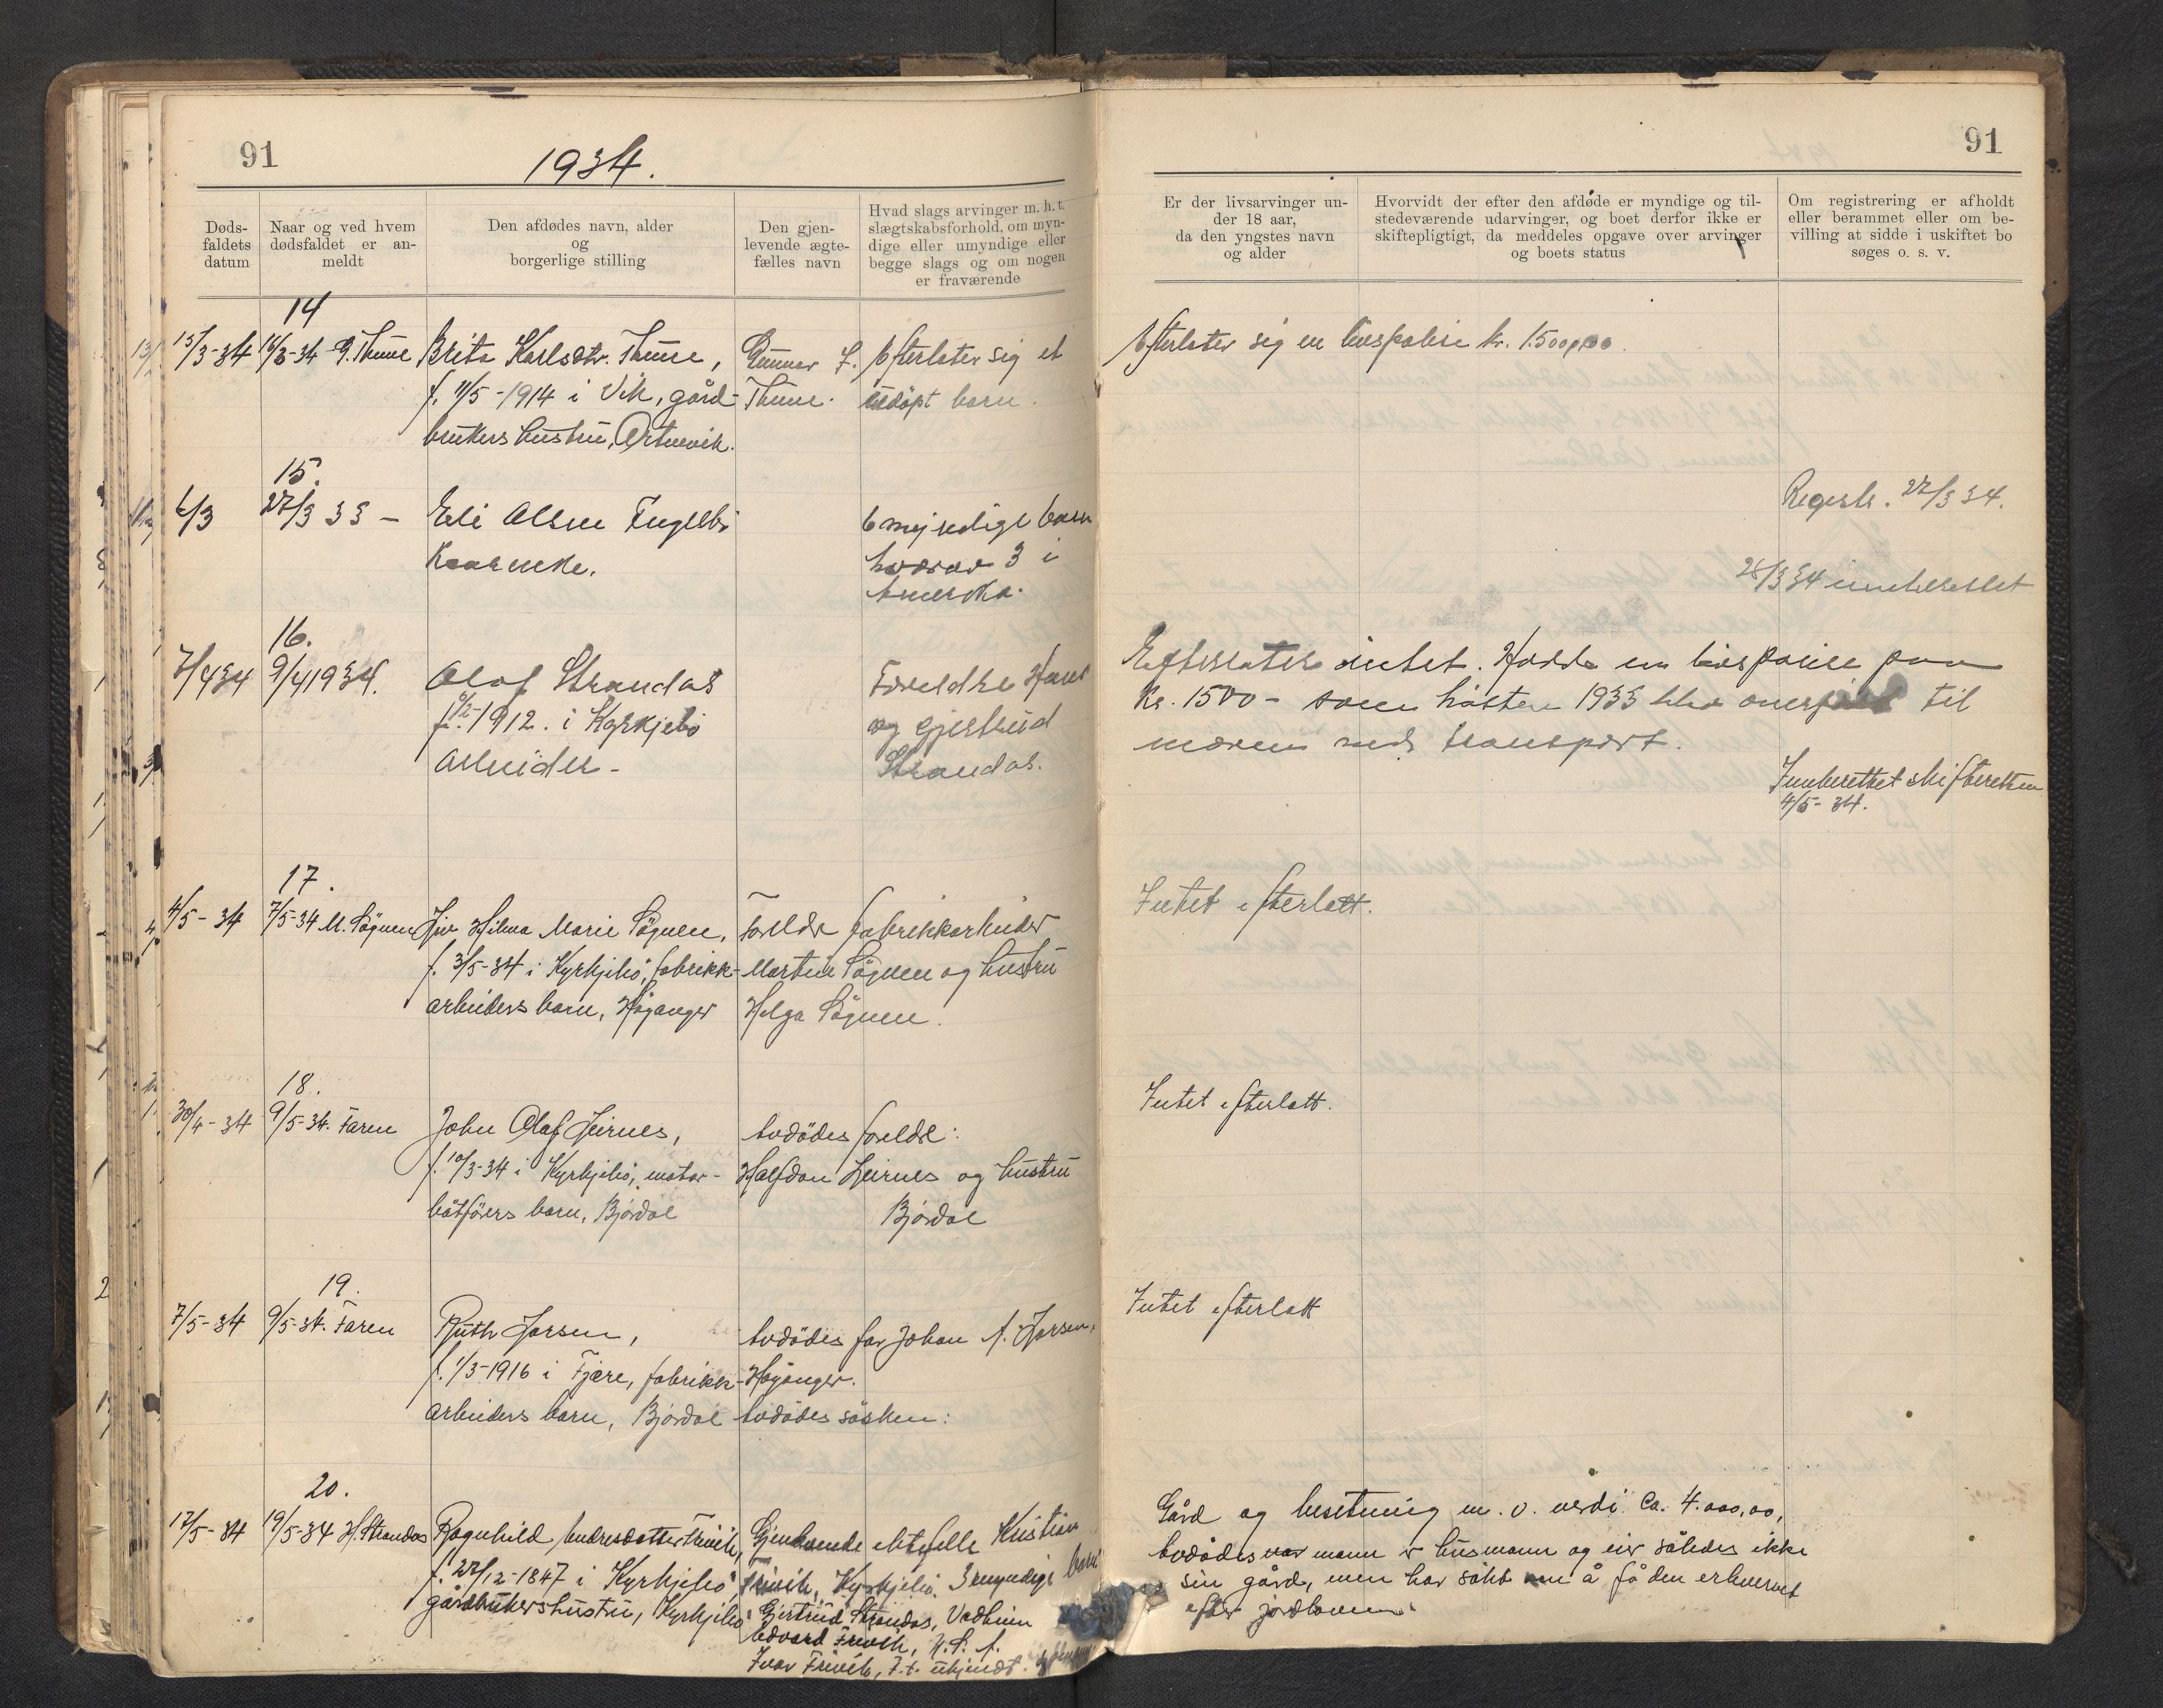 91
1934.
Døds-
faldets
datum
Naar og ved hvem
dødsfaldet er an-
meldt
Den afdødes navn, alder
og
borgerlige stilling
Den gjen-
levende ægte-
fælles navn
Hvad slags arvinger m. h. t.
slægtskabsforhold, om myn-
dige eller umyndige eller
begge slags og om nogen
er fraværende
14
15/3-34 16/3-34 G. Thune Brita Karlsdtr. Thune, Gunnar L. Efterlater sig et
f. 11/5-1914 i Vik, gård- Thune. udöpt barn.
brukers hustru, Ortnevik.
15.
6/3 27/3 33 - Eli Olsen Fuglebö 6 myndige barn
Kaarenke. hvorav 3 i
Amerika.
16.
7/4 34 9/4 1934. Olaf Strandos Foreldre Hans
1912. i Kyrkjebö og Gjertrud
Arbeider - Strandos.
17.
4/5-34 7/5-34 M. Sögnen Hilma Marie Sögnen, Foreldre fabrikkarbeider
f. 3/5-34 i Kyrkjebö, fabrikk- Martin Sögnen og hustru
arbeiders barn, Höyanger Helga Sögnen.
18.
30/4-34 9/5-34. Faren John Olaf Leirnes, Avdödes foreldre:
f. 10/3-34 i Kyrkjebö, motor- Halfdan Leirnes og hustru
båtförers barn, Bjordal Bjordal
19.
7/5-34 9/5-34. Faren Ruth Larsen, Avdödes far Johan A. Larsen,
f. 1/3-1916 i Fjære, fabrikk- Höyanger.
arbeiders barn, Bjordal Avdödes søsken:
20.
17/5-34 19/5-34 H. Strandos Ragnhild Andresdotter Frivik, Gjenlevende ektefelle Kristian
f. 27/12-1847 i Kyrkjebö Frivik, Kyrkjebö. 3 myndige barn
gårdbrukers hustru, Kyrkjebö Gjertrud Strandos, Vadheim
Edvard Frivik, U.S.A.
Ivar Frivik, F.t. ukjendt.
91
Er der livsarvinger un-
der 18 aar,
da den yngstes navn
og alder
Hvorvidt der efter den afdøde er myndige og til-
stedeværende udarvinger, og boet derfor ikke er
skiftepligtigt, da meddeles opgave over arvinger
og boets status
Om registrering er afholdt
eller berammet eller om be-
villing at sidde i uskiftet bo
søges o. s. v.
Efterlater sig en livspolise kr. 1500,00.
Registr. 27/3 34.
28/3 34 innberettet
Efterlater intet. Hadde en livspolise paa
Kr. 1500 - som hösten 1933 blev til
moren med transport.
Innberettet skifteretten
4/5-34.
Intet efterlatt.
Intet efterlatt.
Intet efterlatt
Gård og besetning m. v. verdi ca. 4.000,00,
Avdödes mann er husmann og eier således ikke
sin gård, men har søkt om å få den erhvervet
efter jordloven.